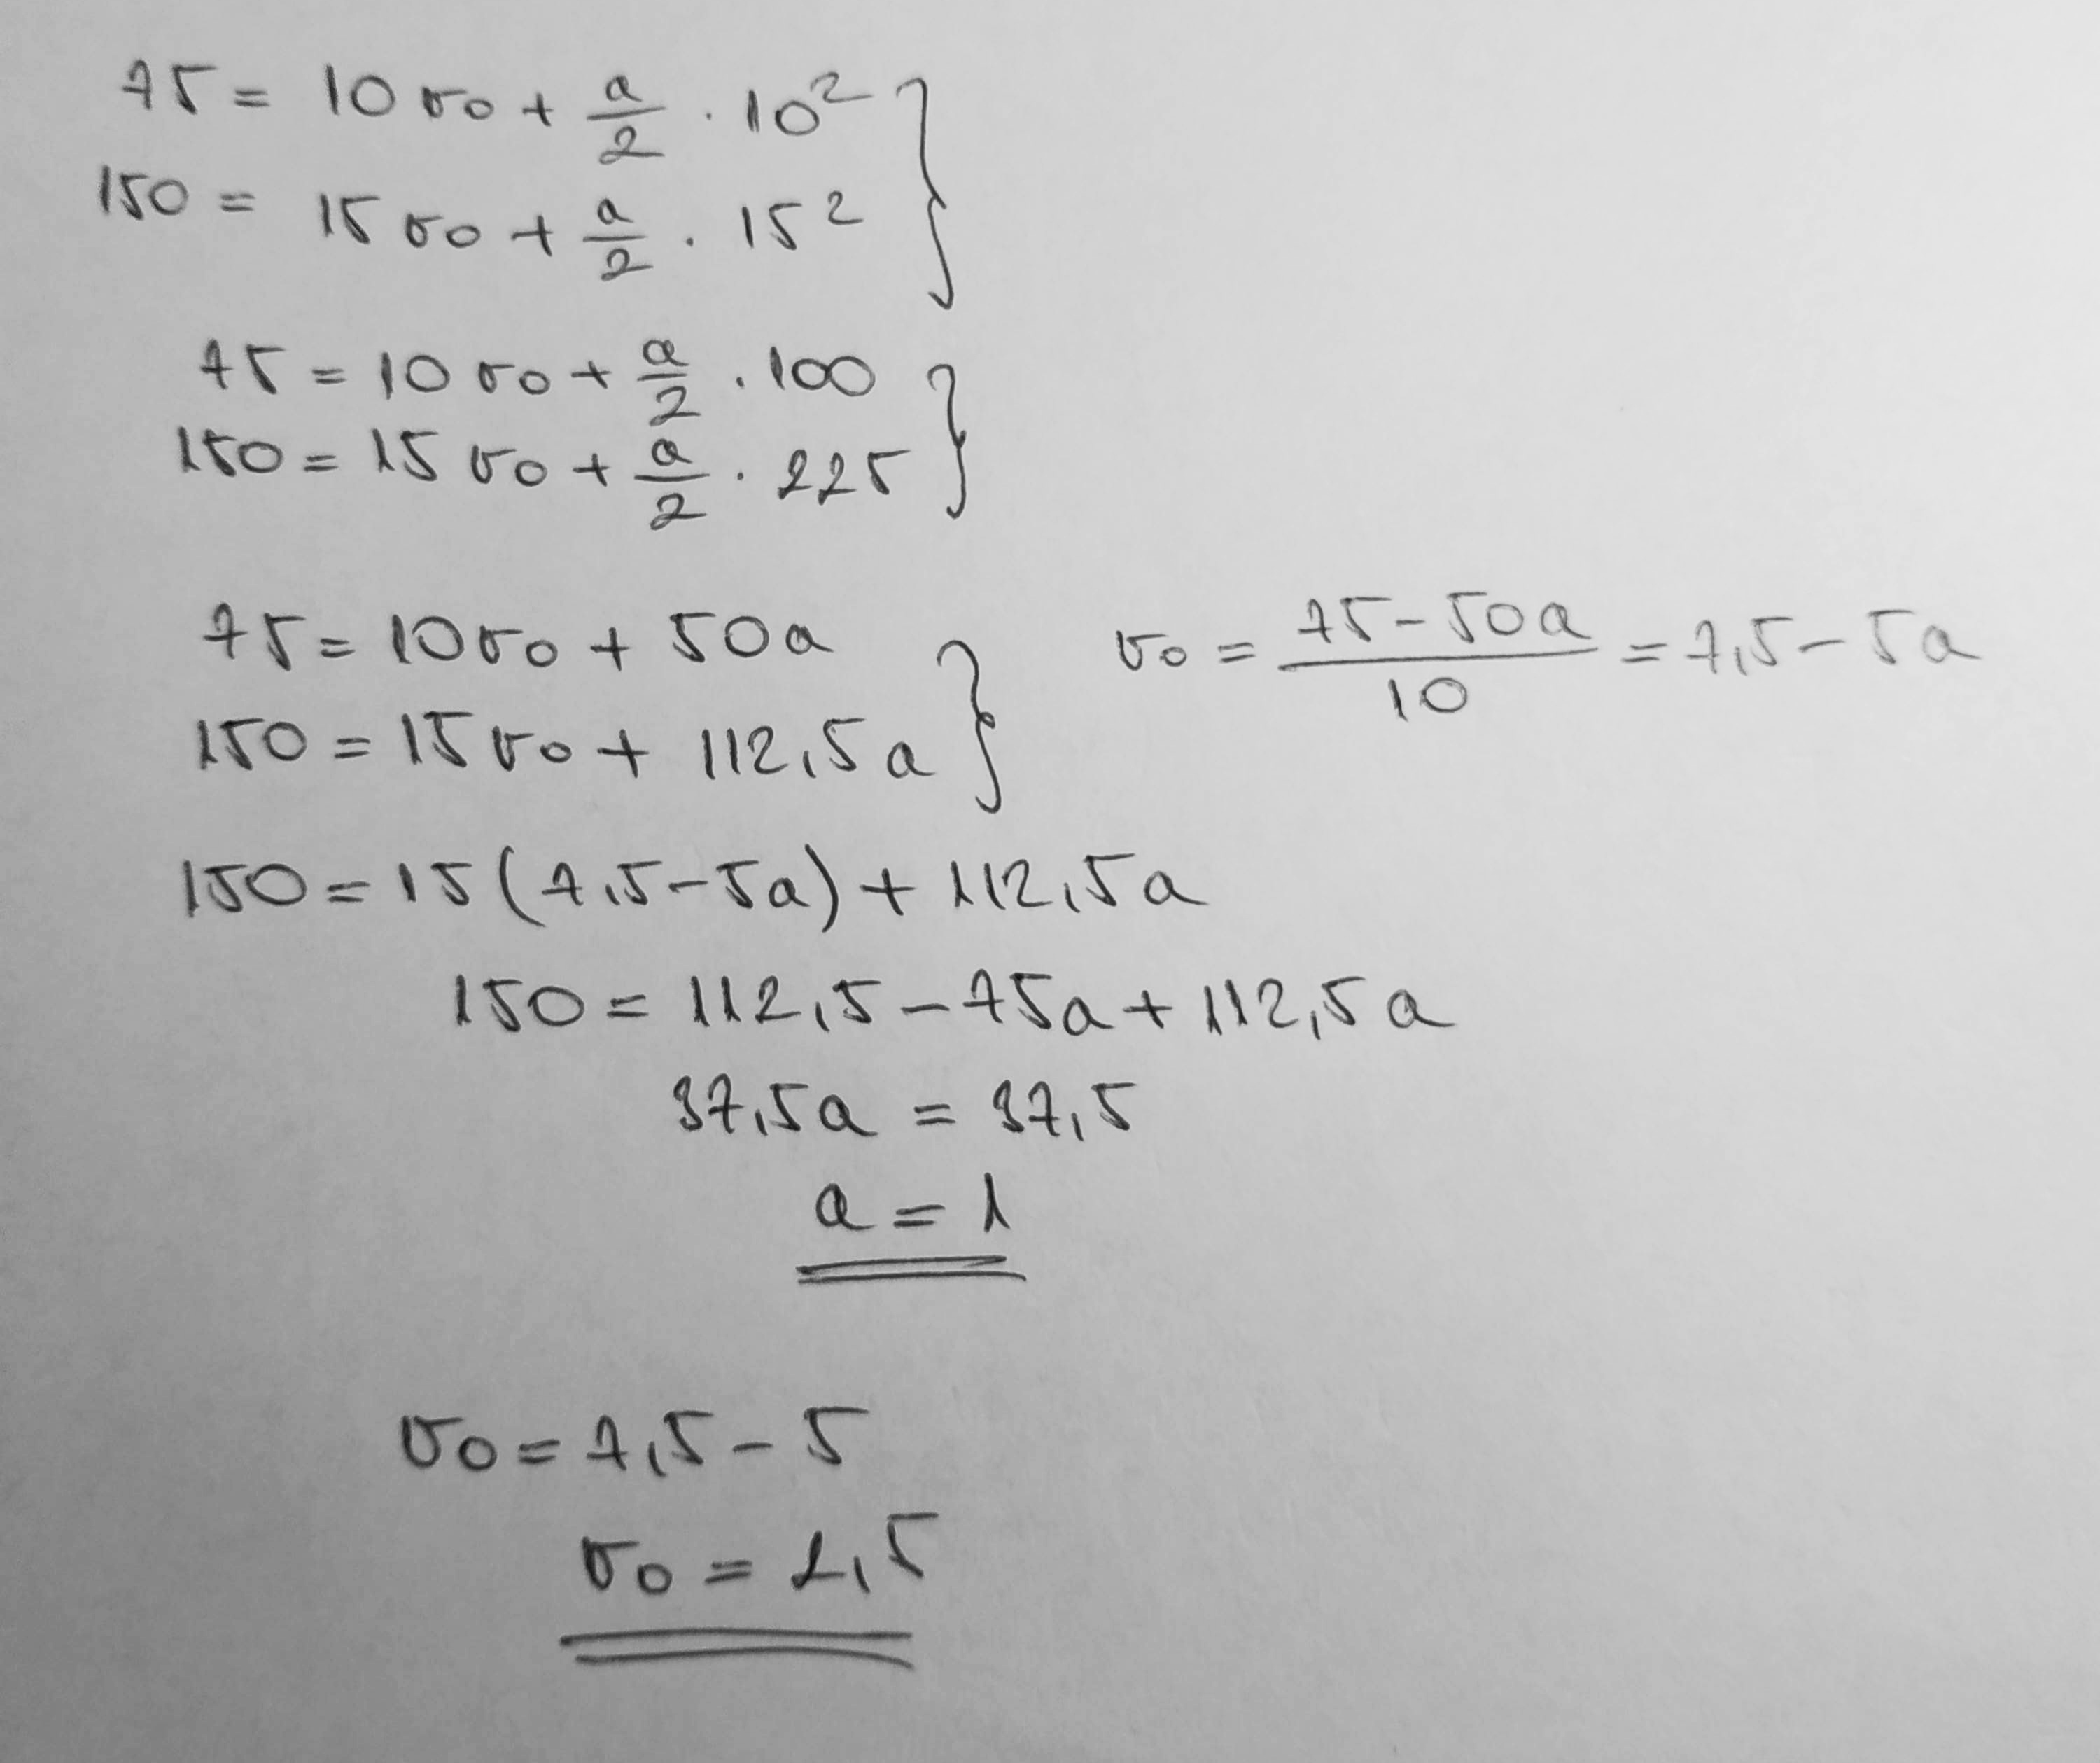 75 = 10 v0 + a/2 · 10²
150 = 15 v0 + a/2 · 15²
75 = 10 v0 + a/2 · 100
150 = 15 v0 + a/2 · 225
75 = 10 v0 + 50a
v0 = (75 - 50a)/10 = 7,5 - 5a
150 = 15 v0 + 112,5a
150 = 15 (7,5 - 5a) + 112,5a
150 = 112,5 - 75a + 112,5a
37,5a = 37,5
a = 1
v0 = 7,5 - 5
v0 = 2,5